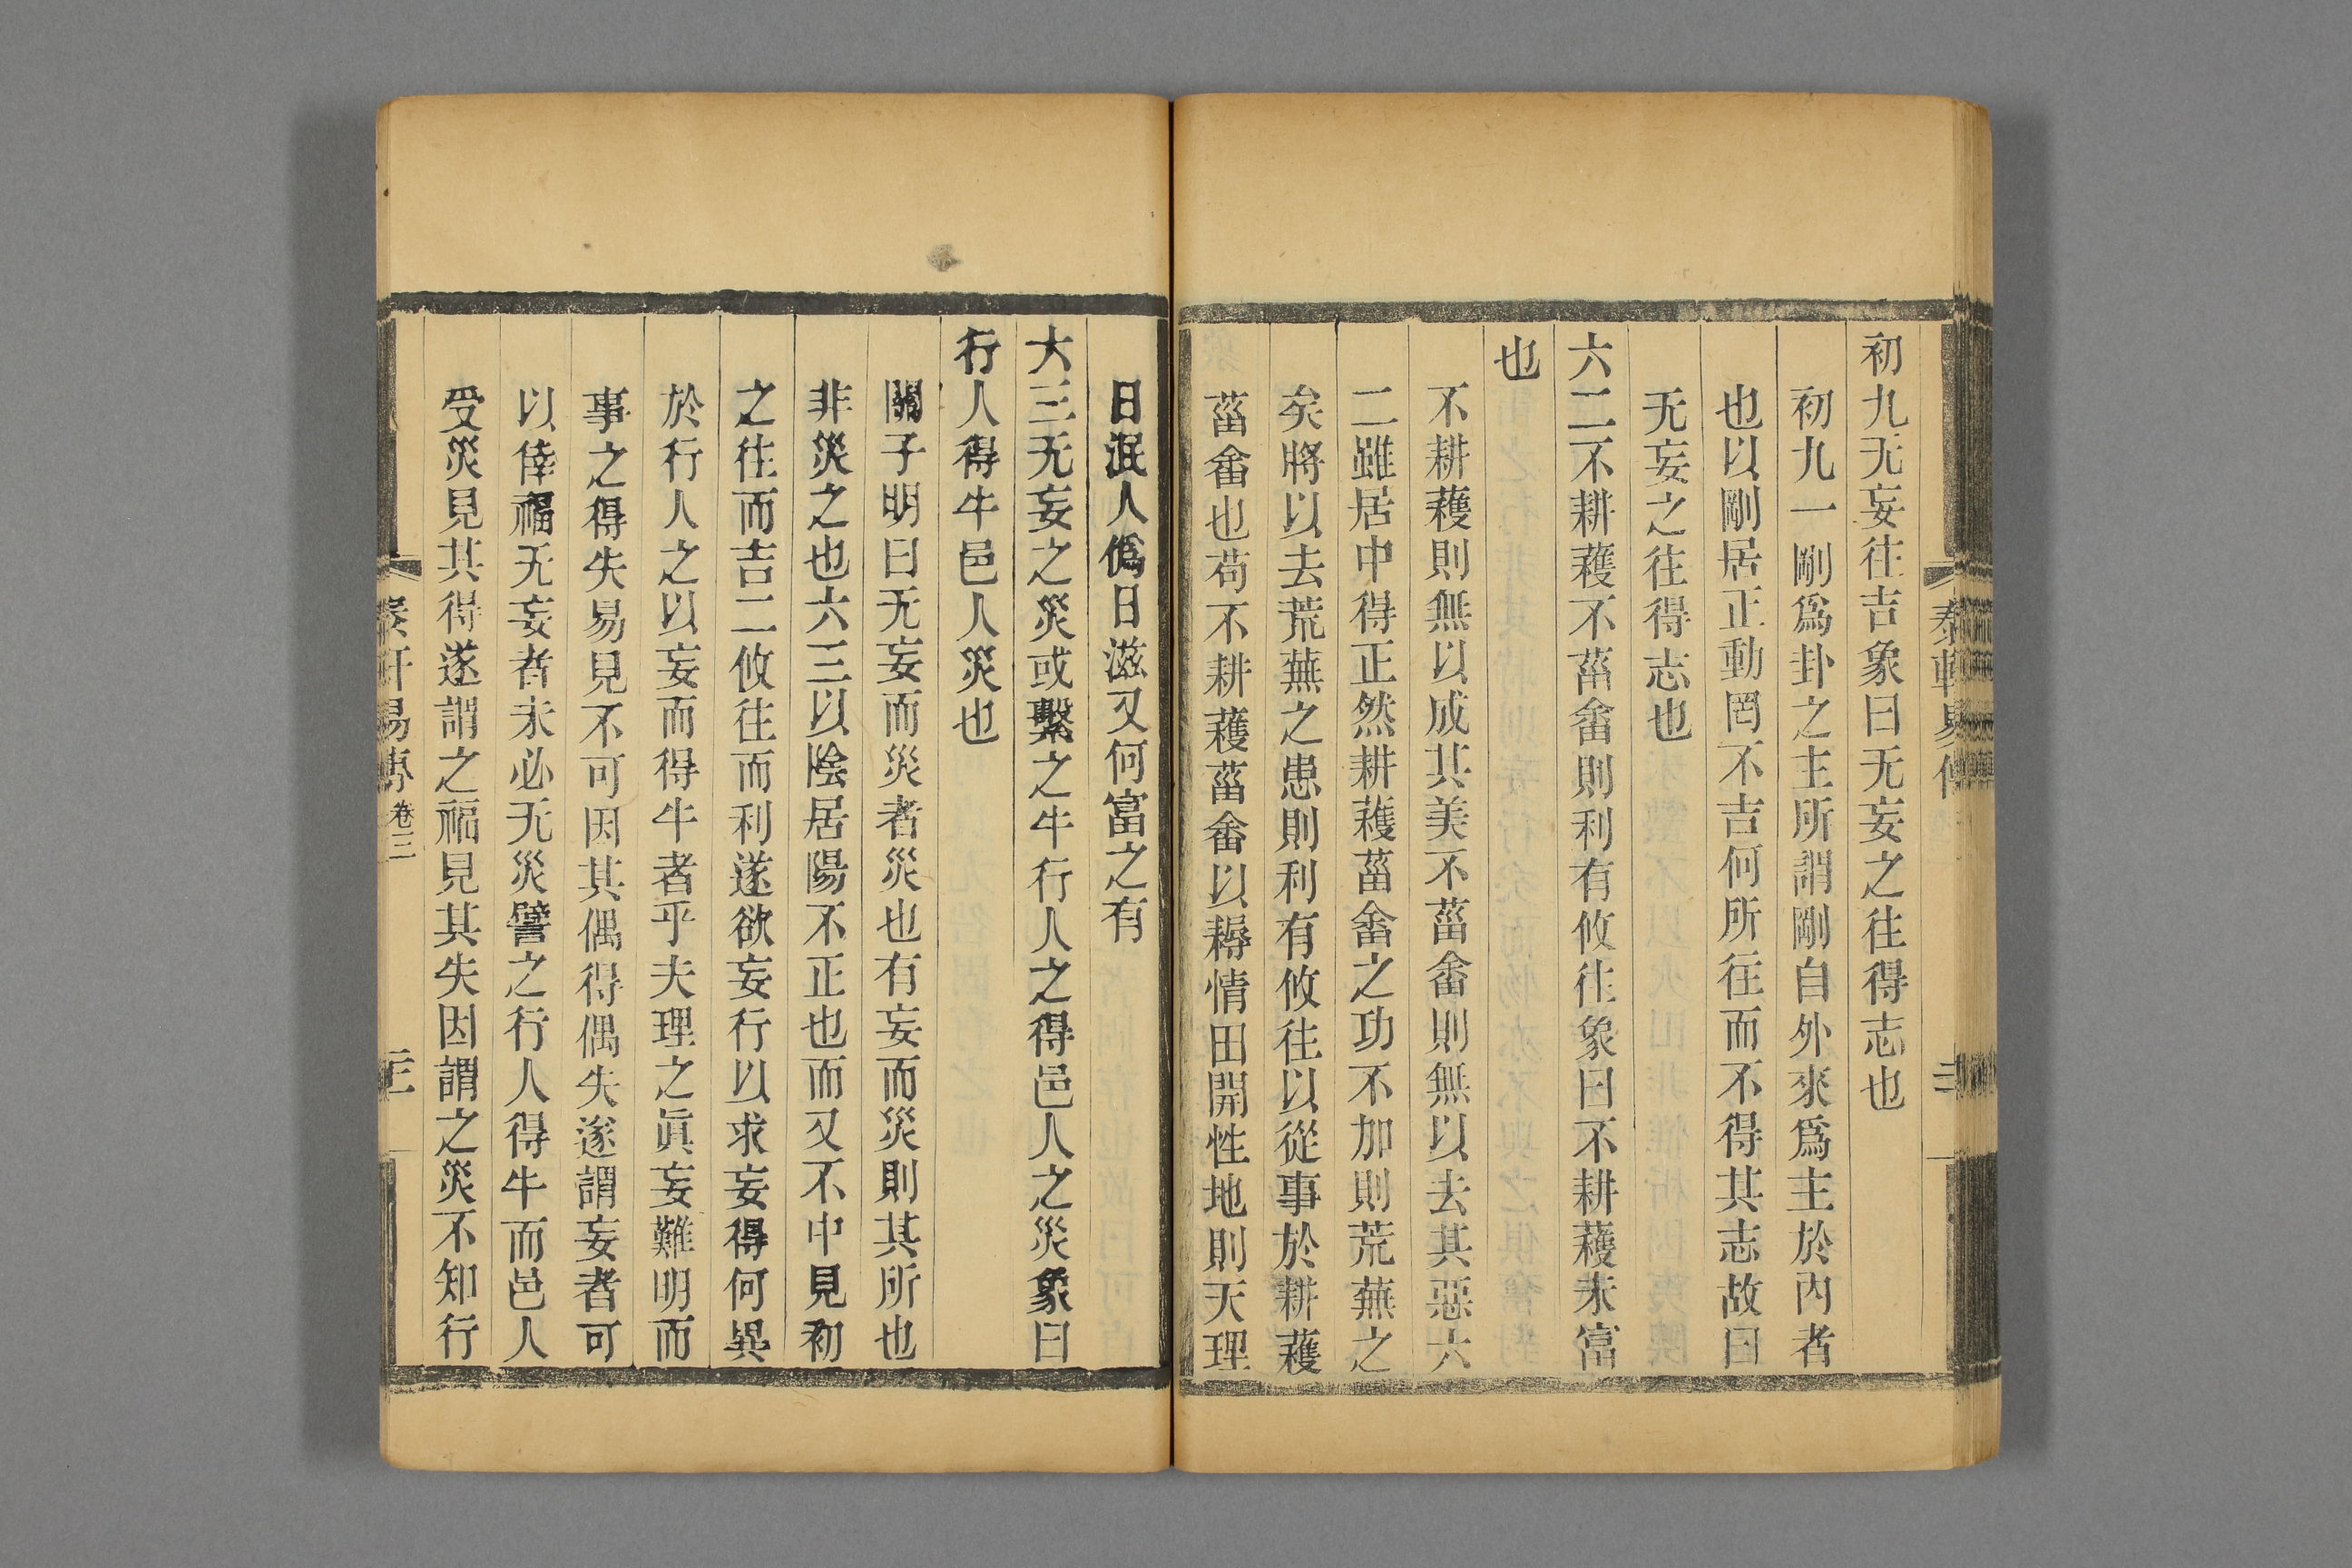 初九无妄往吉象曰无妄之往得志也
初九一剛爲卦之主所謂剛自外來爲主於內者
也以剛居正動罔不吉何所往而不得其志故曰
无妄之往得志也
六二不耕穫不菑畬則利有攸往象曰不耕穫未富
也
不耕穫則無以成其美不菑畬則無以去其惡六
二雖居中得正然耕穫菑畬之功不加則荒蕪之
矣將以去荒蕪之患則利有攸往以從事於耕穫
菑畬也苟不耕穫菑畬以耨情田開性地則天理
日泯人僞日滋又何富之有
六三无妄之災或繫之牛行人之得邑人之災象曰
行人得牛邑人災也
關子明曰无妄而災者災也有妄而災則其所也
非災之也六三以陰居陽不正也而又不中見初
之往而吉二攸往而利遂欲妄行以求妄得何異
於行人之以妄而得牛者乎夫理之眞妄難明而
事之得失易見不可因其偶得偶失遂謂妄者可
以倖福无妄者未必无災譬之行人得牛而邑人
受災見其得遂謂之福見其失因謂之災不知行
易傳 卷三